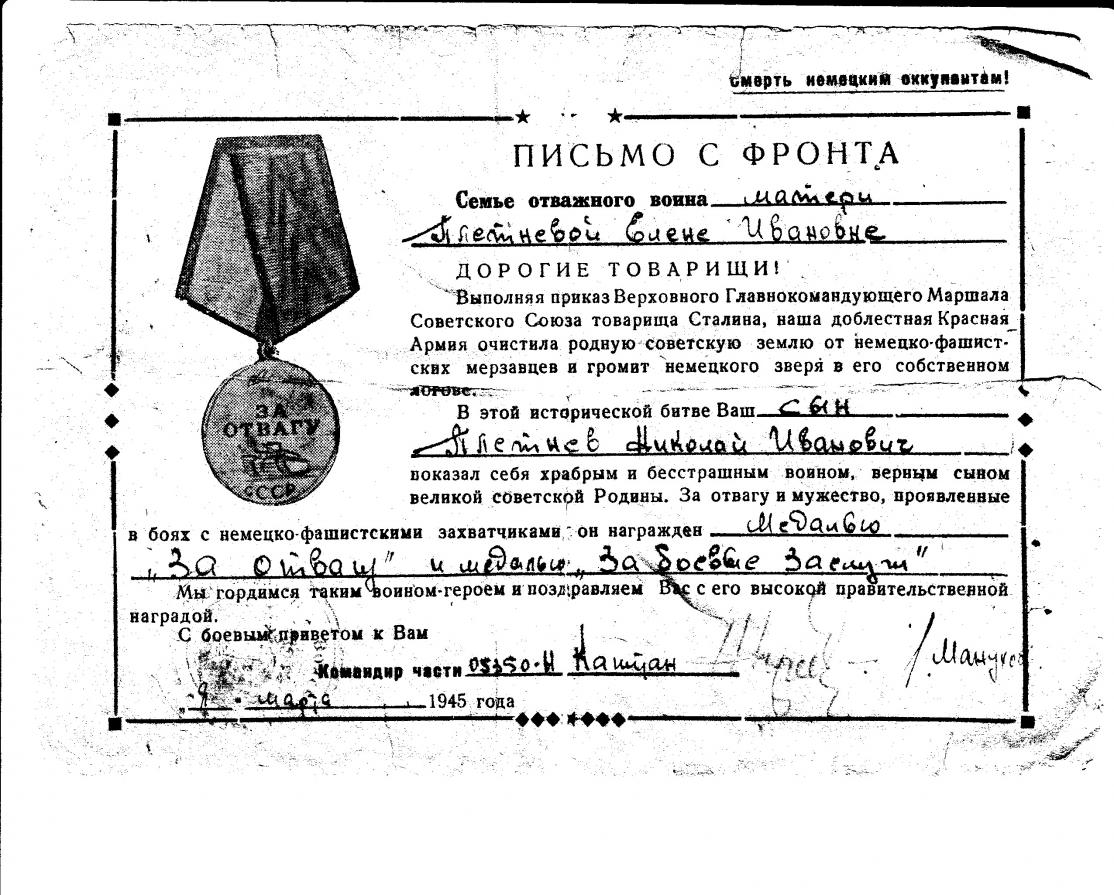 Смерть немецким оккупантам!
ПИСЬМО С ФРОНТА
Семье отважного воина матери
Плетневой Елене Ивановне
ДОРОГИЕ ТОВАРИЩИ!
Выполняя приказ Верховного Главнокомандующего Маршала
Советского Союза товарища Сталина, наша доблестная Красная
Армия очистила родную советскую землю от немецко-фашист-
ских мерзавцев и громит немецкого зверя в его собственном
логове.
В этой исторической битве Ваш сын
Плетнев Николай Иванович
показал себя храбрым и бесстрашным воином, верным сыном
великой советской Родины. За отвагу и мужество, проявленные
в боях с немецко-фашистскими захватчиками он награжден медалью
„За отвагу" и медалью „За боевые заслуги"
Мы гордимся таким воином-героем и поздравляем Вас с его высокой правительственной
наградой.
С боевым приветом к Вам
Командир части 05350-Н Капитан
/Мануков
9 марта 1945 года
ЗА
ОТВАГУ
СССР